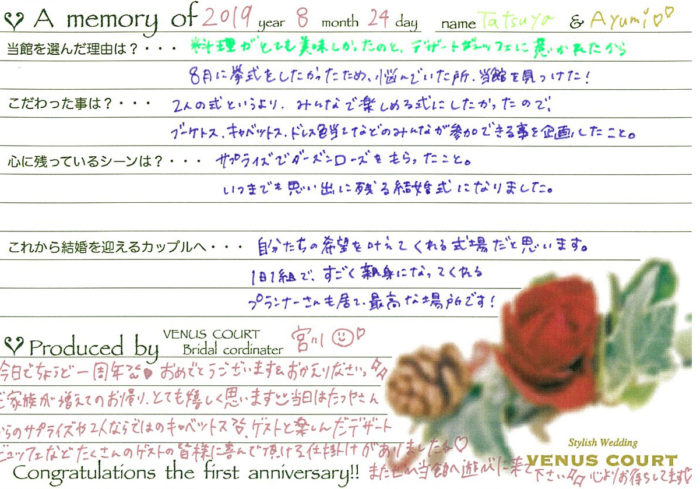 A memory of 2019 year 8 month 24 day name Tatsuya & Ayumi
当館を選んだ理由は?・・・ 料理がとても美味しかったのと、デザートビュッフェに惹かれたから
8月に挙式をしたかったため、悩んでいた所、当館を見つけた!
こだわった事は?・・・ 2人の式というより、みんなで楽しめる式にしたかったので、
ブーケトス、キャベットス、ドレス色当てなどのみんなが参加できる事を企画したこと。
心に残っているシーンは?・・・ サプライズでダーズンローズをもらったこと。
いつまでも思い出に残る結婚式になりました。
これから結婚を迎えるカップルへ・・・ 自分たちの希望を叶えてくれる式場だと思います。
1日1組で、すごく親身になってくれる
プランナーさんも居て、最高な場所です!
Produced by VENUS COURT Bridal cordinater 宮川
今日でちょうど一周年 おめでとうございます&おかえりなさい
ご家族が増えてのお帰り、とても嬉しく思います 当日はたつやさん
からのサプライズや2人ならではのキャベットス、ゲストと楽しんだデザート
ビュッフェなどたくさんのゲストの皆様に喜んで頂ける仕掛けがありましたね
Congratulations the first anniversary!! またぜひ当館へ遊びに来て下さい 心よりお待ちしてます
Stylish Wedding
VENUS COURT